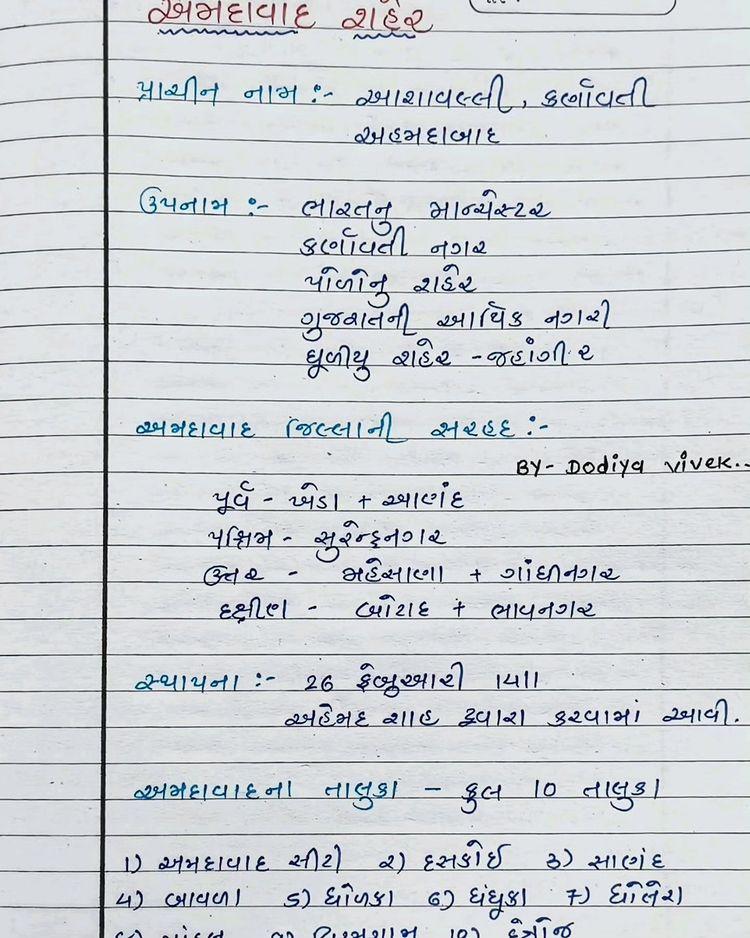 અમદાવાદ શહેર
પ્રાચીન નામ :- આશાવલ્લી, કર્ણાવતી
અહમદાબાદ
ઉપનામ :- ભારતનુ માન્ચેસ્ટર
કર્ણાવતી નગર
પોળોનુ શહેર
ગુજરાતની આર્થિક નગરી
ધૂળીયુ શહેર - જહાંગીર
અમદાવાદ જિલ્લાની સરહદ :-
BY- Dodiya Vivek..
પૂર્વ - ખેડા + આણંદ
પશ્ચિમ - સુરેન્દ્રનગર
ઉત્તર - મહેસાણા + ગાંધીનગર
દક્ષીણ - બોટાદ + ભાવનગર
સ્થાપના :- 26 ફેબ્રુઆરી 1411
અહેમદ શાહ દ્વારા કરવામાં આવી.
અમદાવાદના તાલુકા - કુલ 10 તાલુકા
1) અમદાવાદ સીટી ૨) દસક્રોઈ 3) સાણંદ
4) બાવળા 5) ધોળકા 6) ધંધુકા 7) ધોલેરા